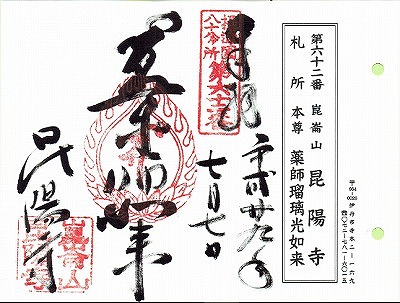 第六十二番 崑崙山 昆陽寺
札所 本尊 薬師瑠璃光如来
〒664-0026 伊丹市寺本二-一六九
☎〇七二-七八一-六〇一五
奉拝
平成廿九年
七月七日
摂津国
八十八ヶ所
第六十二番
薬師如来
昆陽寺